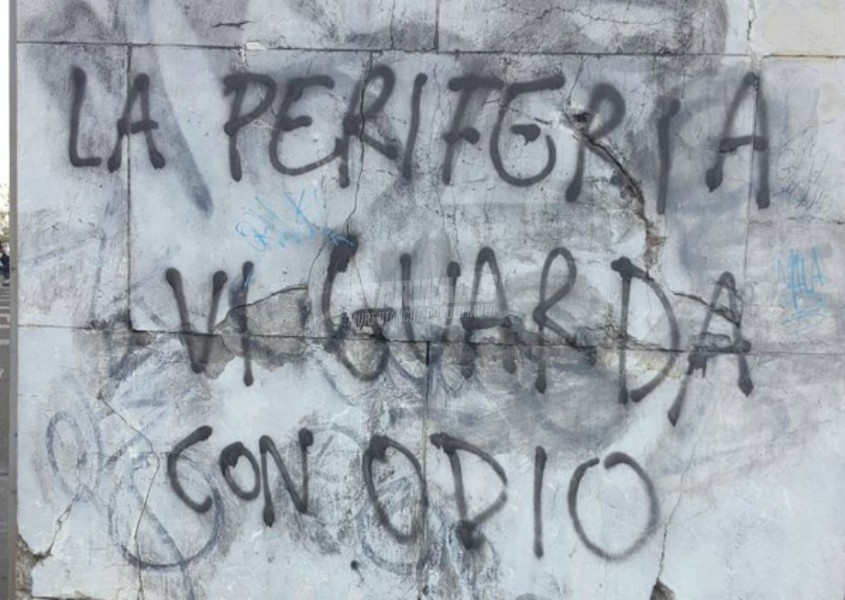 LA PERIFERIA
VI GUARDA
CON ODIO